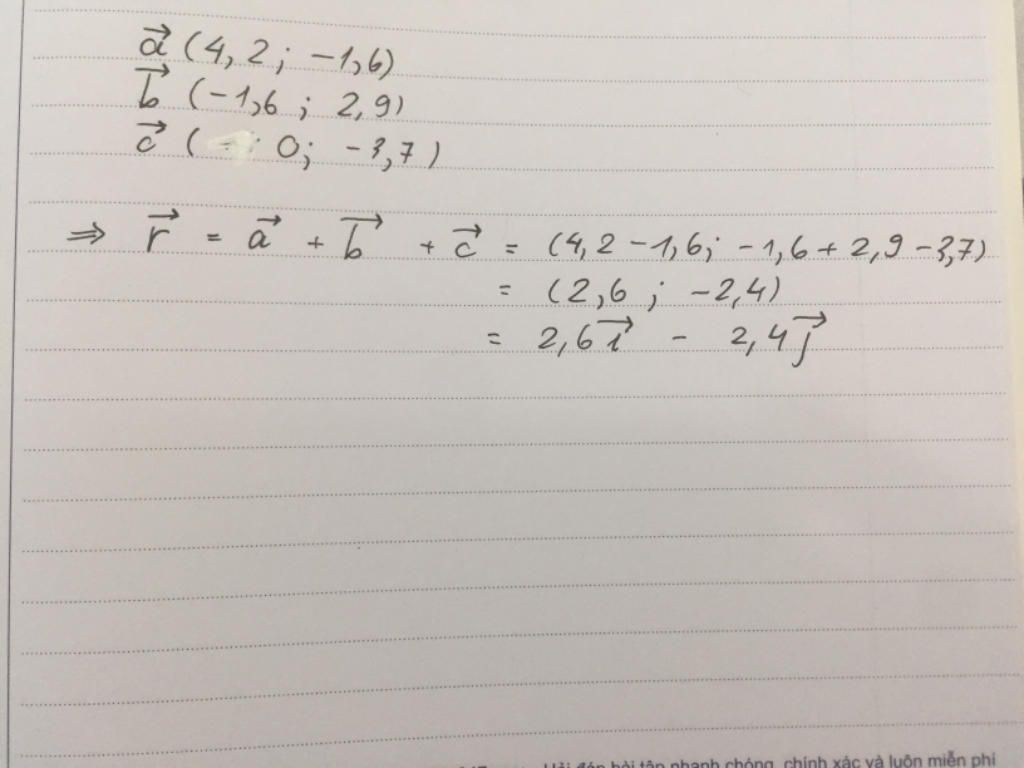 a⃗ (4,2 ; -1,6)
b⃗ (-1,6 ; 2,9)
c⃗ ( 0; -3,7)
⇒ r⃗ = a⃗ + b⃗ + c⃗ = (4,2 - 1,6; -1,6 + 2,9 - 3,7)
= (2,6 ; -2,4)
= 2,6 i⃗ - 2,4 j⃗
Hỏi đáp bài tập nhanh chóng, chính xác và luôn miễn phí